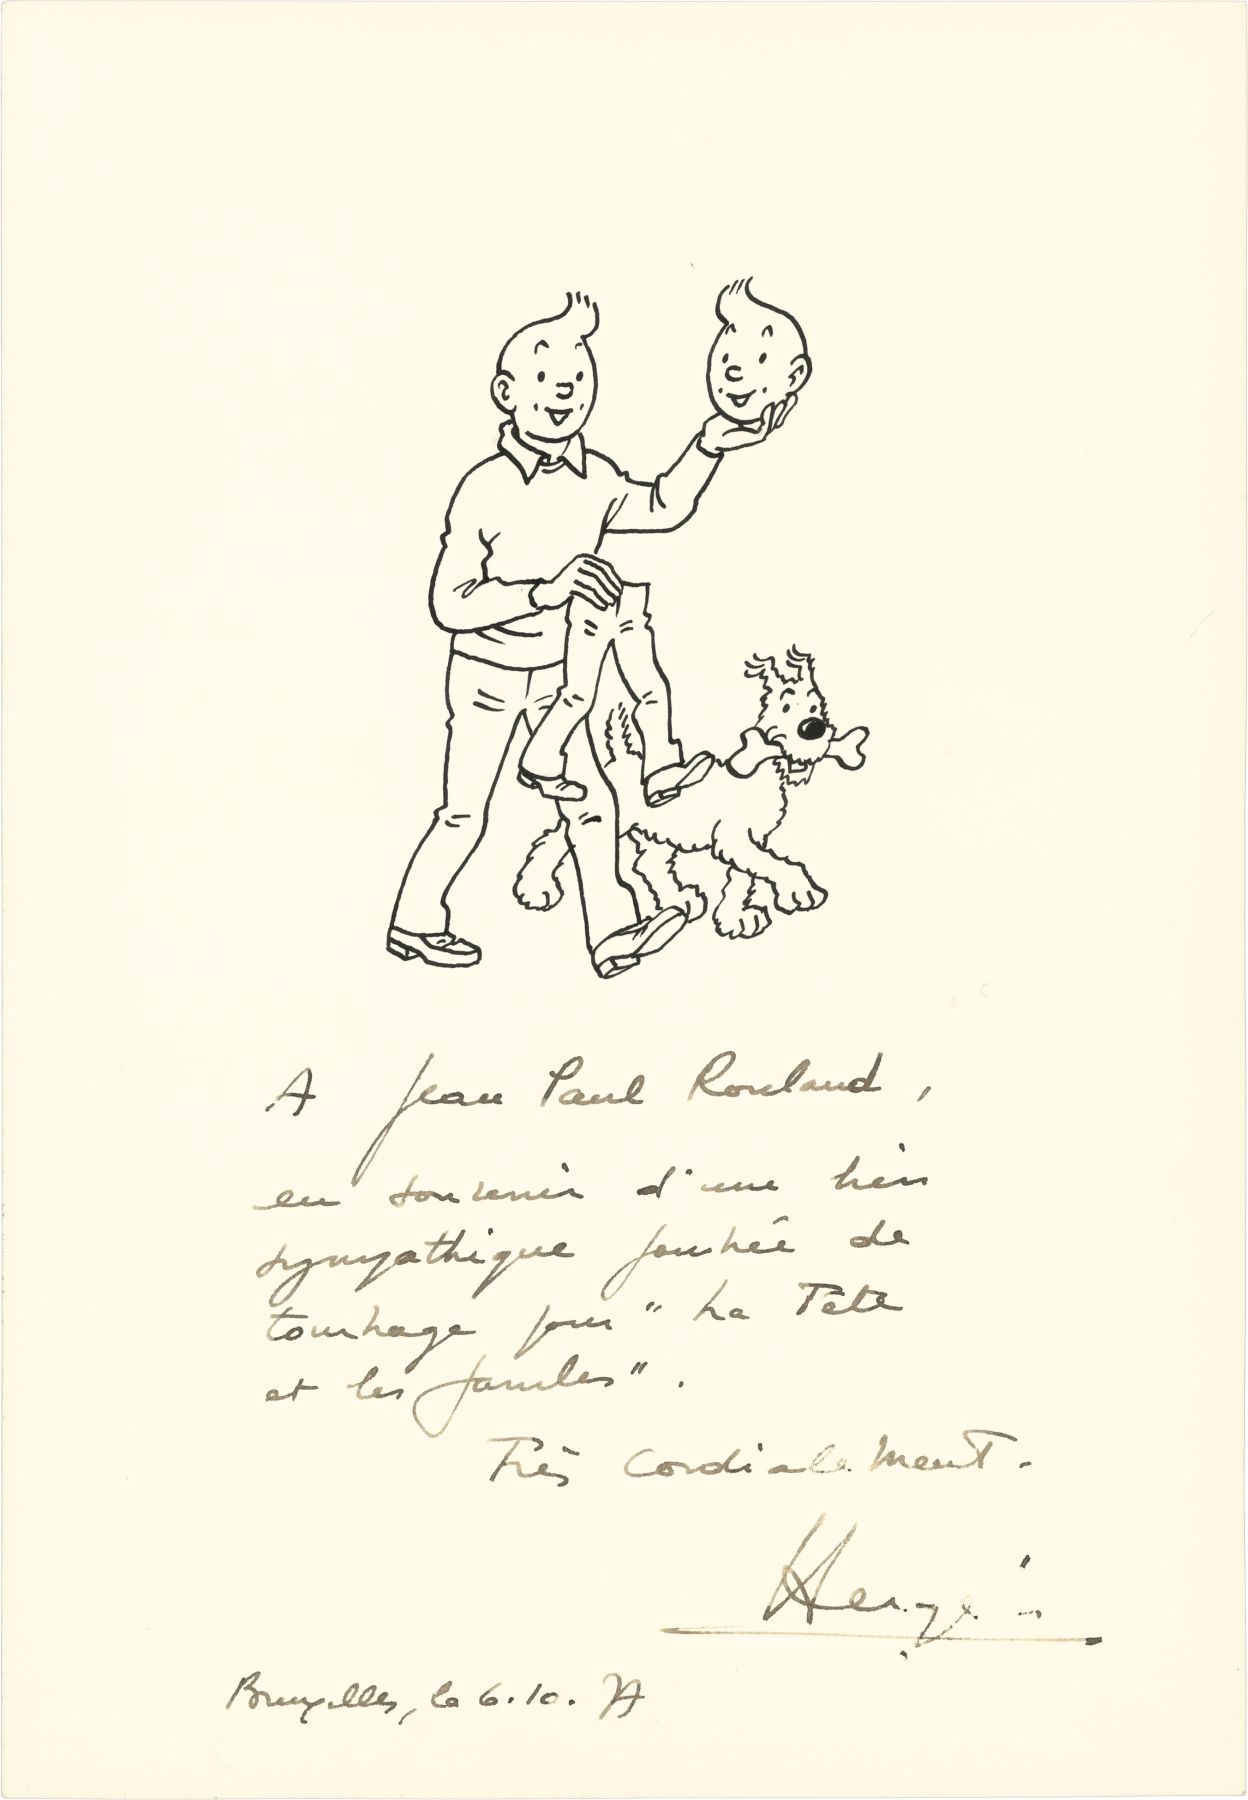 A Jean Paul Rouland,
en souvenir d'une très
sympathique journée de
tournage pour "La Tête
et les Jambes".
Très cordialement.
Hergé
Bruxelles, le 6.10.